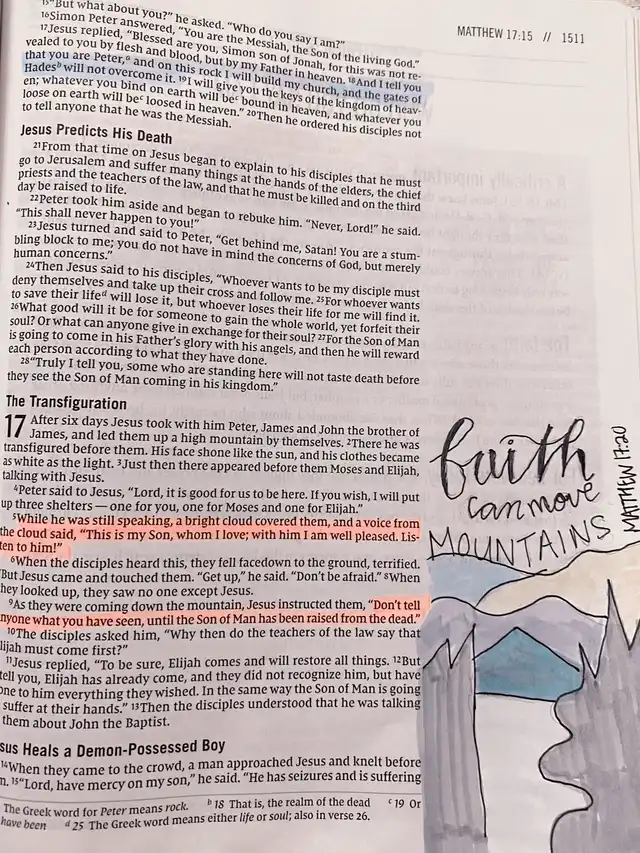 MATTHEW 17:15 // 1511
15“But what about you?” he asked. “Who do you say I am?”
16Simon Peter answered, “You are the Messiah, the Son of the living God.”
17Jesus replied, “Blessed are you, Simon son of Jonah, for this was not re-
vealed to you by flesh and blood, but by my Father in heaven. 18And I tell you
that you are Peter,a and on this rock I will build my church, and the gates of
Hadesb will not overcome it. 19I will give you the keys of the kingdom of heav-
en; whatever you bind on earth will bec bound in heaven, and whatever you
loose on earth will bec loosed in heaven.” 20Then he ordered his disciples not
to tell anyone that he was the Messiah.
Jesus Predicts His Death
21From that time on Jesus began to explain to his disciples that he must
go to Jerusalem and suffer many things at the hands of the elders, the chief
priests and the teachers of the law, and that he must be killed and on the third
day be raised to life.
22Peter took him aside and began to rebuke him. “Never, Lord!” he said.
“This shall never happen to you!”
23Jesus turned and said to Peter, “Get behind me, Satan! You are a stum-
bling block to me; you do not have in mind the concerns of God, but merely
human concerns.”
24Then Jesus said to his disciples, “Whoever wants to be my disciple must
deny themselves and take up their cross and follow me. 25For whoever wants
to save their lifed will lose it, but whoever loses their life for me will find it.
26What good will it be for someone to gain the whole world, yet forfeit their
soul? Or what can anyone give in exchange for their soul? 27For the Son of Man
is going to come in his Father’s glory with his angels, and then he will reward
each person according to what they have done.
28“Truly I tell you, some who are standing here will not taste death before
they see the Son of Man coming in his kingdom.”
The Transfiguration
17 After six days Jesus took with him Peter, James and John the brother of
James, and led them up a high mountain by themselves. 2There he was
transfigured before them. His face shone like the sun, and his clothes became
as white as the light. 3Just then there appeared before them Moses and Elijah,
talking with Jesus.
4Peter said to Jesus, “Lord, it is good for us to be here. If you wish, I will put
up three shelters — one for you, one for Moses and one for Elijah.”
5While he was still speaking, a bright cloud covered them, and a voice from
the cloud said, “This is my Son, whom I love; with him I am well pleased. Lis-
ten to him!”
6When the disciples heard this, they fell facedown to the ground, terrified.
But Jesus came and touched them. “Get up,” he said. “Don’t be afraid.” 8When
they looked up, they saw no one except Jesus.
9As they were coming down the mountain, Jesus instructed them, “Don’t tell
nyone what you have seen, until the Son of Man has been raised from the dead.”
10The disciples asked him, “Why then do the teachers of the law say that
lijah must come first?”
11Jesus replied, “To be sure, Elijah comes and will restore all things. 12But
tell you, Elijah has already come, and they did not recognize him, but have
one to him everything they wished. In the same way the Son of Man is going
suffer at their hands.” 13Then the disciples understood that he was talking
them about John the Baptist.
sus Heals a Demon-Possessed Boy
14When they came to the crowd, a man approached Jesus and knelt before
n. 15“Lord, have mercy on my son,” he said. “He has seizures and is suffering
The Greek word for Peter means rock. b 18 That is, the realm of the dead c 19 Or
have been d 25 The Greek word means either life or soul; also in verse 26.
faith
can move
MOUNTAINS
MATTHEW 17:20